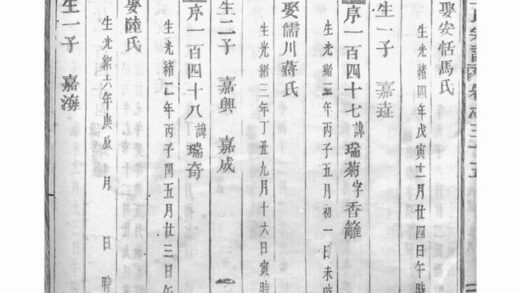 氏宗譜 卷之三十五
娶安恬馬氏
生光緒四年戊寅十一月廿四日午時
生一子 嘉垚
序一百四十七諱瑞菊字香籬
生光緒二年丙子五月初一日未時
娶 川蔣氏
生光緒三年丁丑九月十六日寅時
生二子 嘉興 嘉成
序一百四十八諱瑞奇
生光緒二年丙子四五月廿三日午
娶陸氏
生光緒六年庚辰 月 日 時
生一子 嘉海